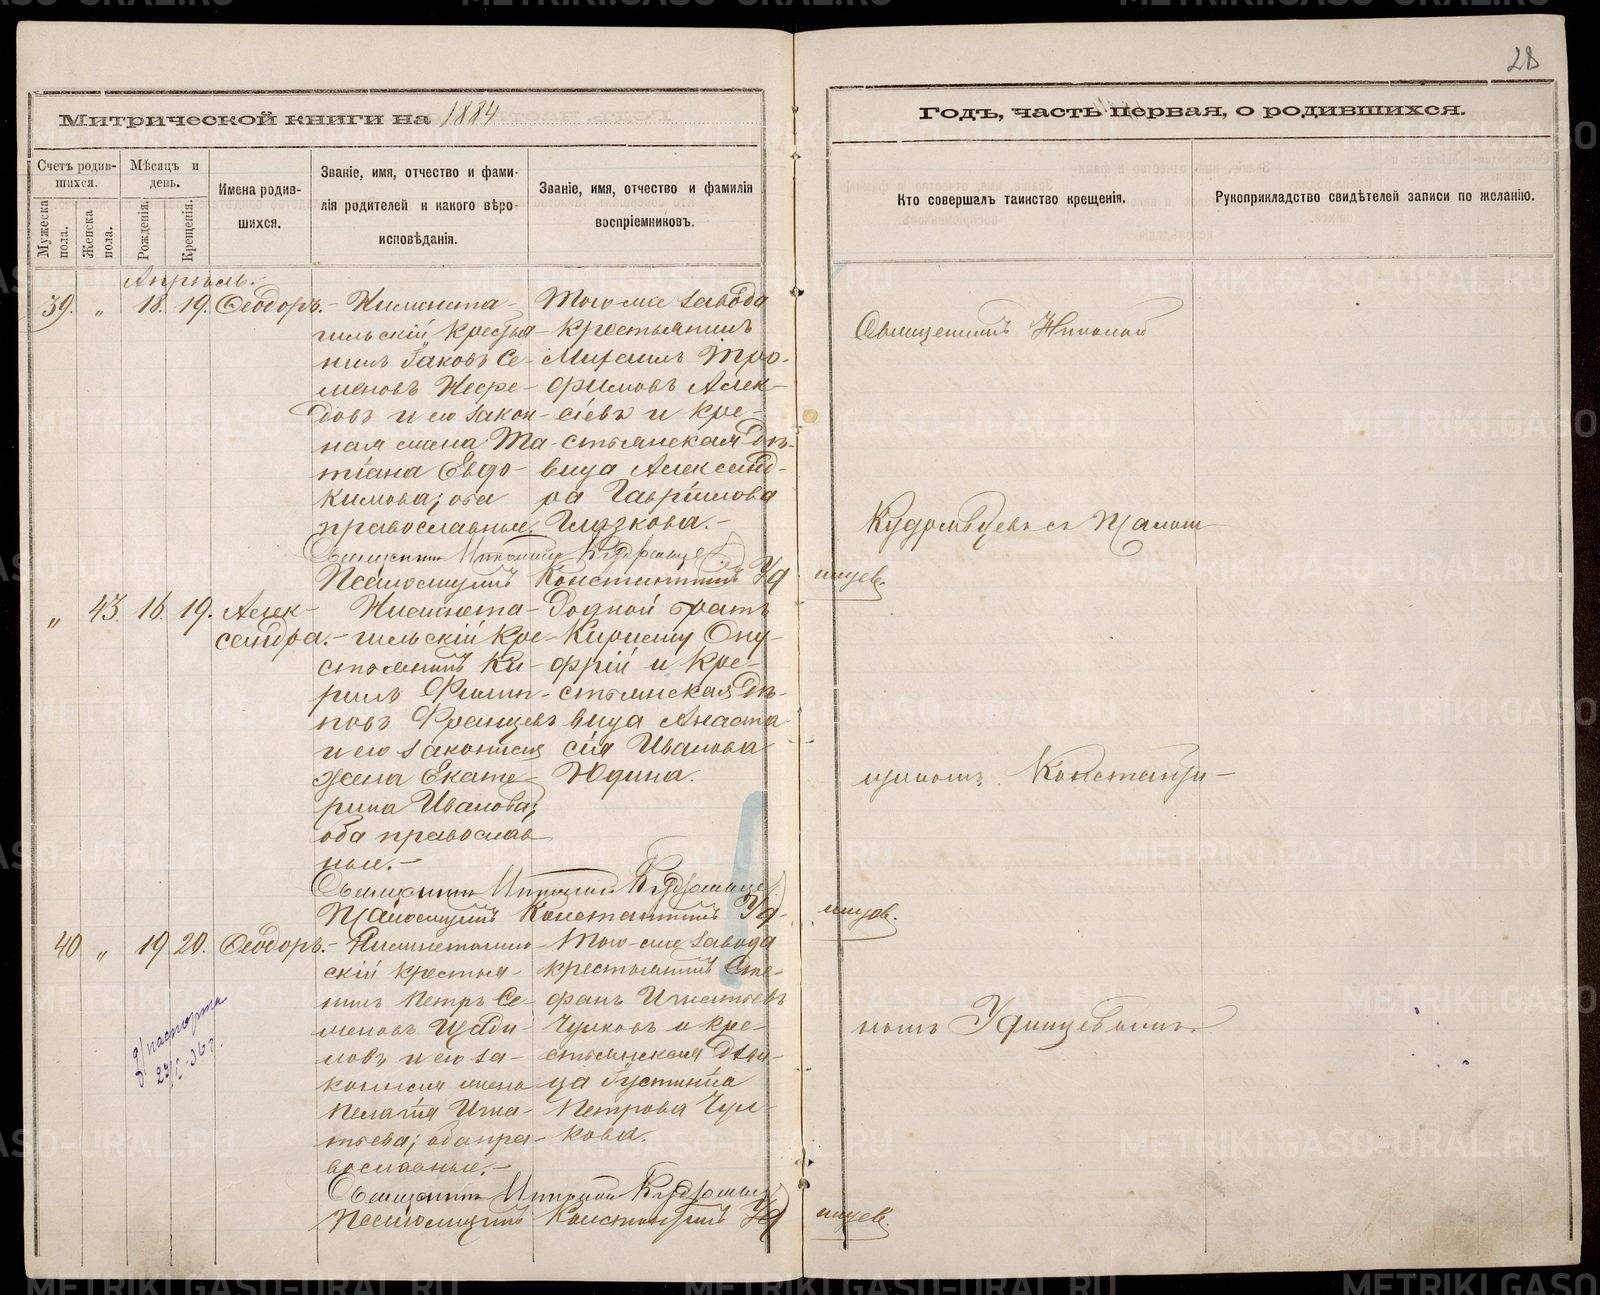 28
Митрической книги на 1884
Годъ, часть первая, о родившихся.
Счетъ родив-
шихся.
Мужеска
пола.
Женска
пола.
Мѣсяцъ и
день.
Рожденія.
Крещенія.
Имена родив-
шихся.
Званіе, имя, отчество и фами-
лія родителей и какого вѣро-
исповѣданія.
Званіе, имя, отчество и фамилія
воспріемниковъ.
Кто совершалъ таинство крещенія.
Рукоприкладство свидѣтелей записи по желанію.
Апрѣль.-
39. „ 18. 19. Ѳеодоръ.-
Нижнета-
гильскій кресть-
нинъ Іаковъ Се-
меновъ Нефе-
довъ и его закон-
ная жена Та-
тіана Евдо-
кимова; оба
православные.
Того-же завода
крестьянинъ
Михаилъ Тро-
фимовъ Алек-
сіевъ и кре-
стьянская дѣ-
вица Александ-
ра Гаврiилова
Глазкова.-
Священникъ Николай
Псаломщикъ Константинъ Уф
ницев.
„ 43. 16. 19. Алек-
сандра.-
Нижнета-
гильскій кре-
стьянинъ Ки-
рилъ Филип-
повъ Францевъ
и его законная
жена Екате-
рина Иванова;
оба православ
ные.-
Родной братъ
Кириллу Ону-
фрій и кре-
стьянская дѣ-
вица Анаста
сія Иванова
Юдина.
Священникъ Николай
Псаломщикъ Константинъ Уф-
ницов.
40 „ 19 20. Ѳеодоръ.-
Нижнетагиль-
скій крестья-
нинъ Петръ Се-
меновъ
ловъ и его за-
конная жена
Пелагія Игна-
тьева; оба пра-
вославные.-
Того-же завода
крестьянинъ Сте-
фанъ Игнатьевъ
Чулковъ и кре-
стьянская дѣви-
ца Іустинія
Петрова Чул-
кова.
Священникъ Николай
Псаломщикъ Константинъ Уф
ницев.
д/паспорта
Священникъ Николай
съ Псалом-
щикомъ Константи-
номъ Уфинцевымъ